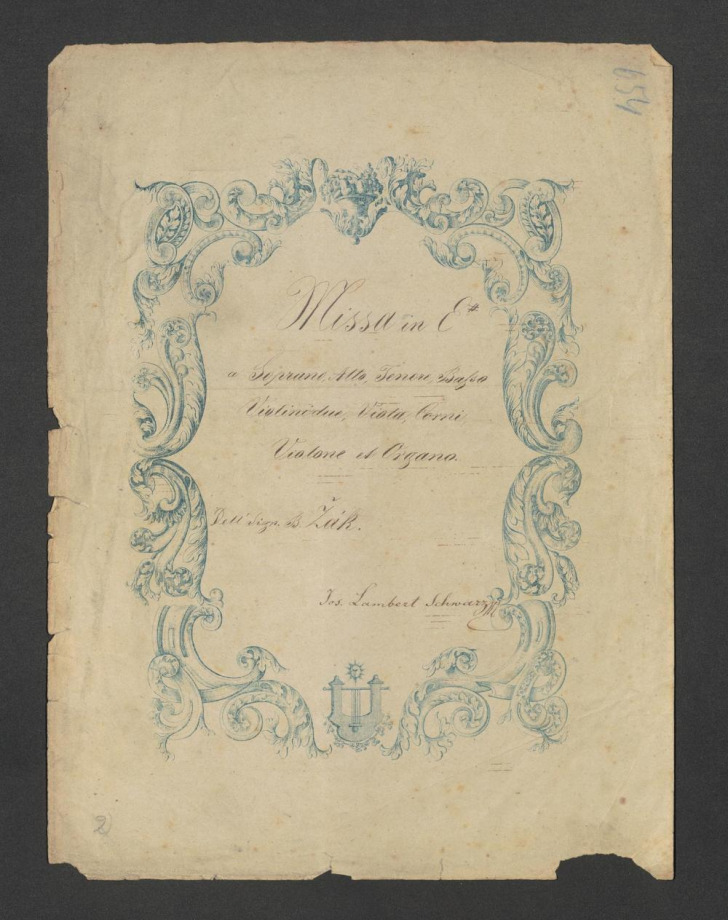 654
Missa in C#
a Soprano, Alto, Tenore, Basso
Violino due, Viola, Corni,
Violone et Organo.
Dell Sign. B Žák.
Jos. Lambert Schwarz
2